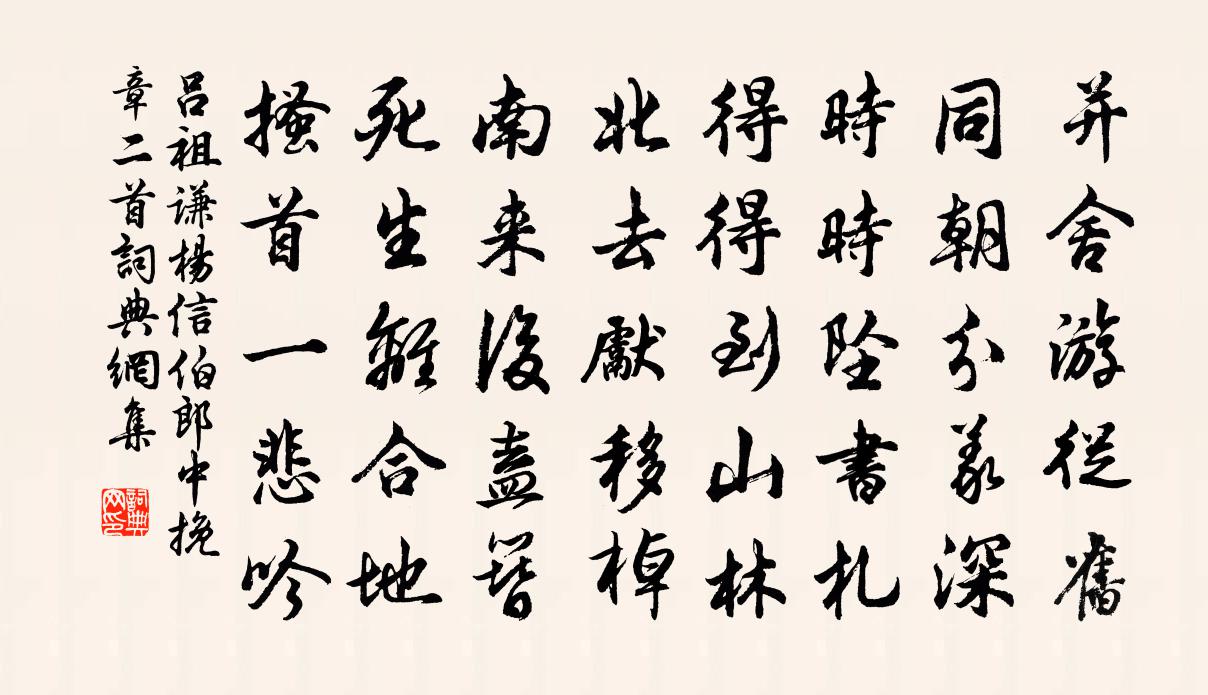 并舍游從舊
同朝分義深
時時墜書札
得得到山林
北去獻移棹
南来後盍簪
死生離合地
搔首一悲吟
吕祖謙楊信伯郎中挽
章二首詞典網集
詞典网印